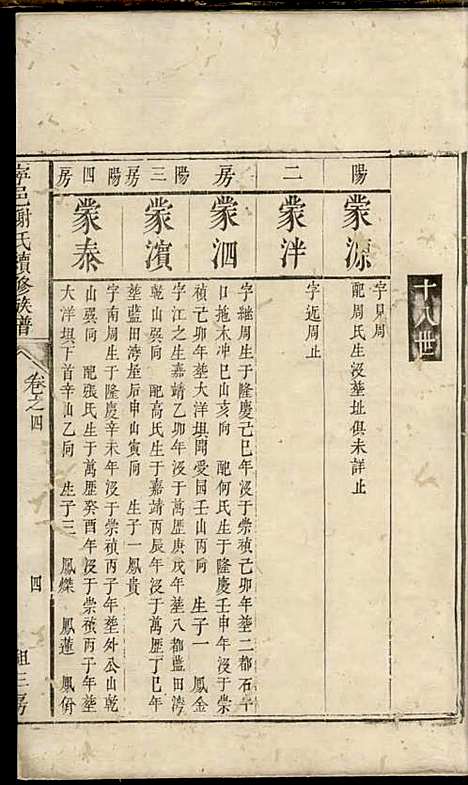 十八世
陽 二 房 陽 三 房 陽 四 房
蒙源
字見周
配周氏生沒塟址俱未詳止
蒙泮
字近周止
蒙泗
字繼周生于隆慶己巳年沒于崇禎己卯年塟二都石子
口拖木冲巳山亥向 配何氏生于隆慶壬申年沒于崇
禎己卯年塟大洋垻閗愛园壬山丙向 生子一 鳳金
蒙濱
字江之生嘉靖乙卯年沒于萬歷庚戌年塟八都藍田湾
乾山巽向 配髙氏生于嘉靖丙辰年沒于萬歷丁巳年
塟藍田湾屋后申山寅向 生子一 鳳貴
蒙泰
字南周生于隆慶辛未年沒于崇禎丙子年塟外公山乾
山巽向 配張氏生于萬歷癸酉年沒于崇禎丙子年塟
大洋垻下首辛山乙向 生子三 鳳傑 鳳蓮 鳳俏
寧邑謝氏續修族譜
卷之四
四
祖三房